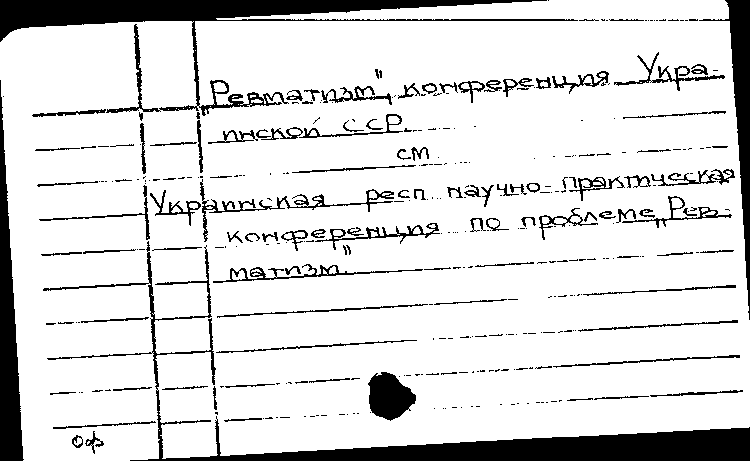 „Ревматизм", конференция Укра-
инской ССР.
см
Украинская респ научно-практическая
конференция по проблеме „Рев-
матизм."
Оф